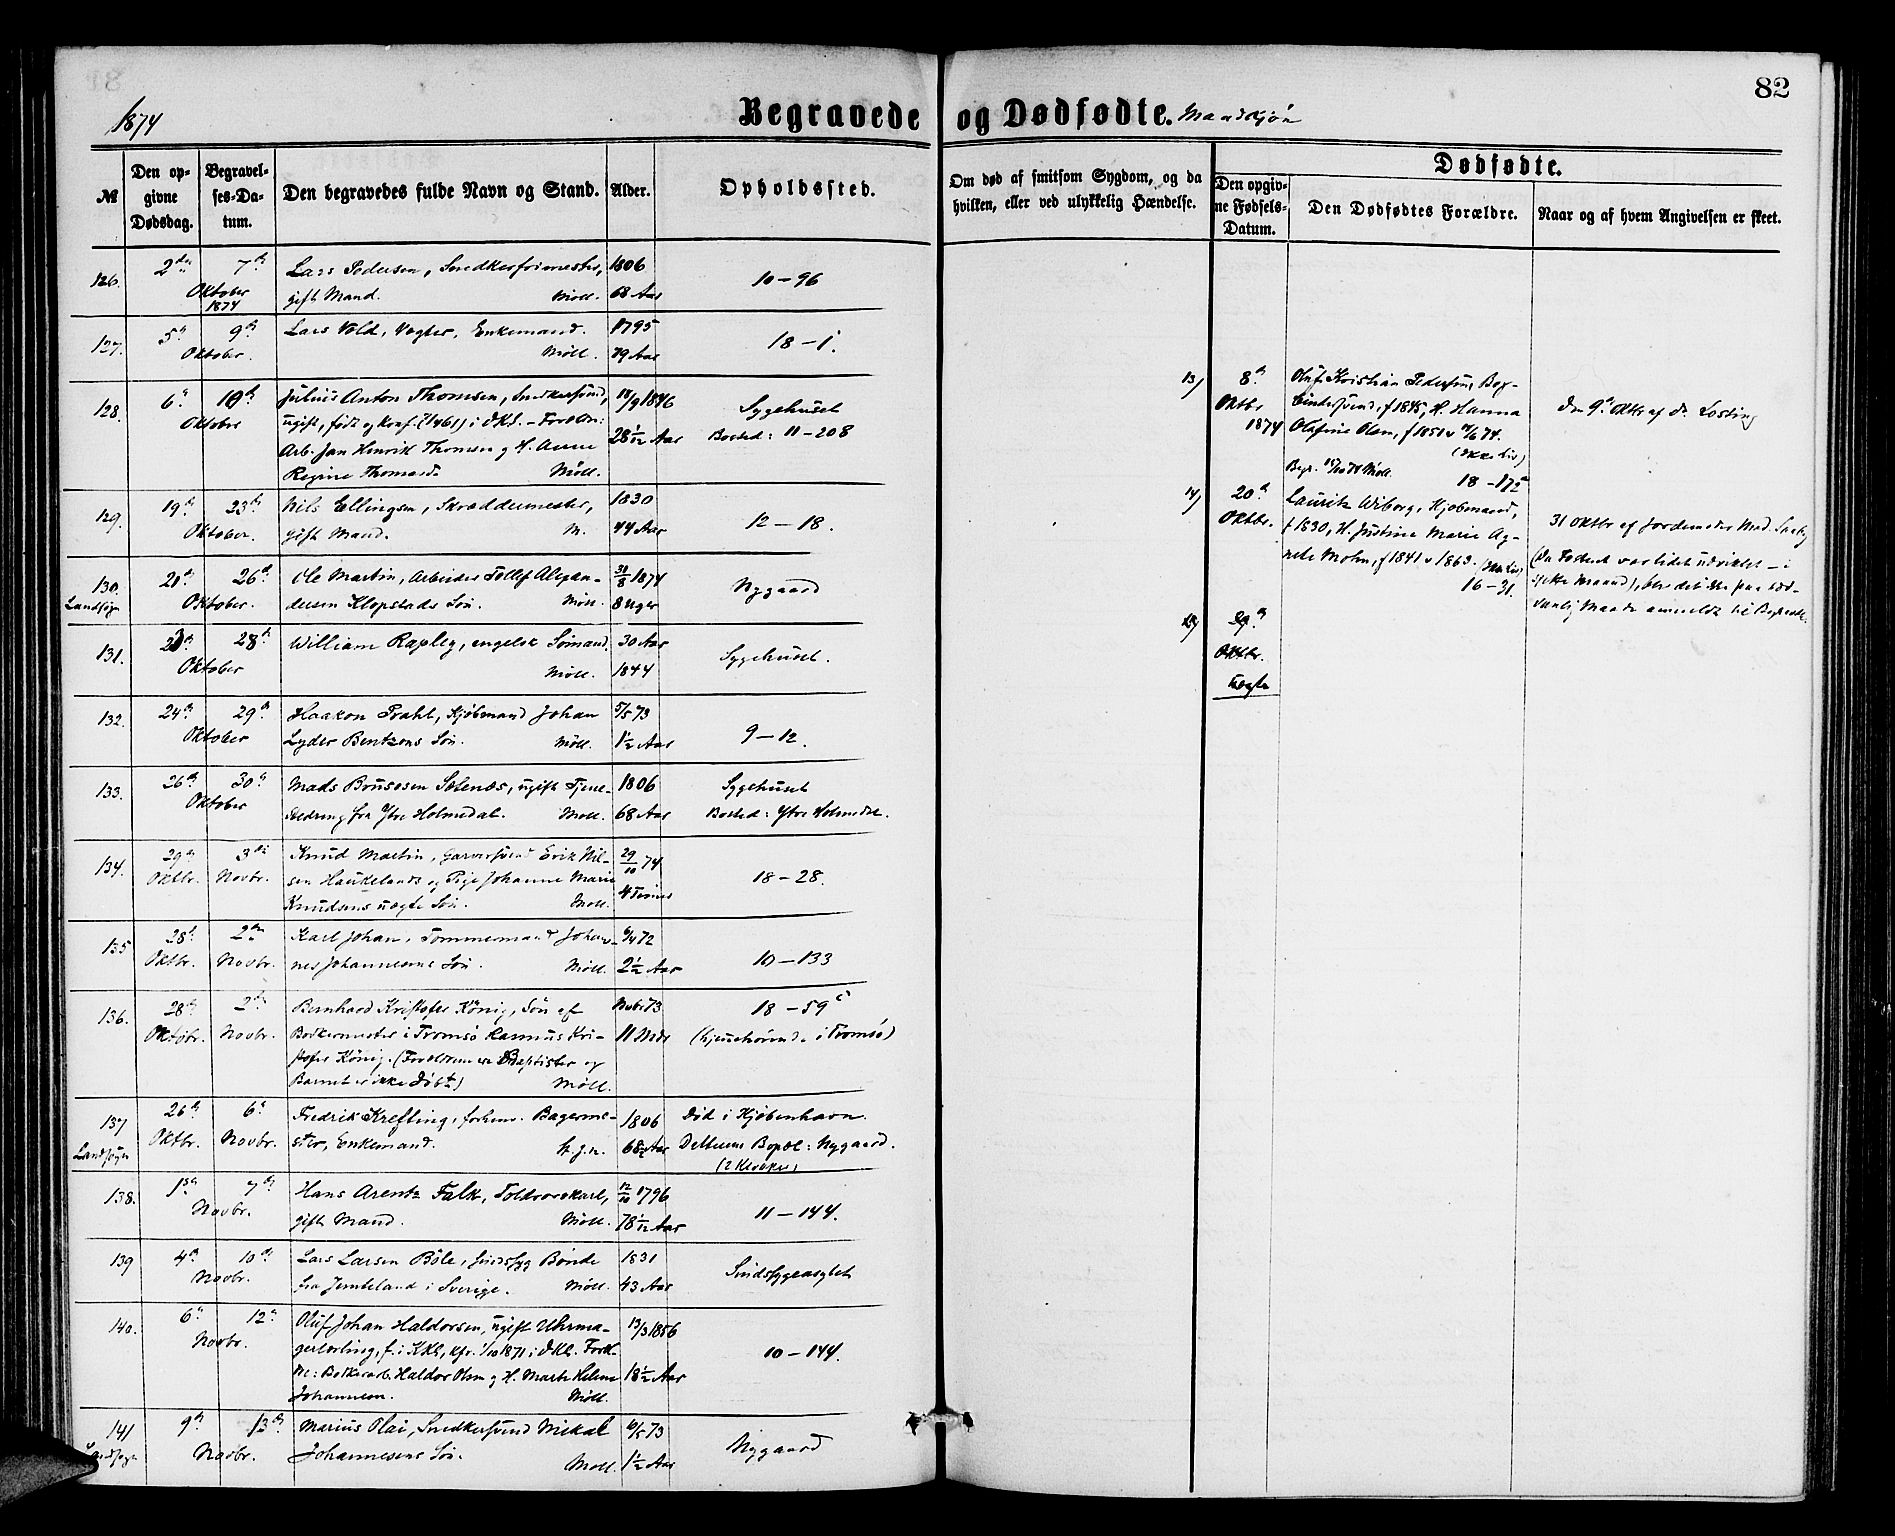 82
1874
Begravede og Dødfødte. Mandkjøn
№
Den opgivne Dødsdag.
Begravelses-Datum.
Den begravedes fulde Navn og Stand.
Alder.
Opholdssted.
Om død af smitsom Sygdom, og da hvilken, eller ved ulykkelig Hændelse.
Dødfødte.
Den opgivne Fødsels-Datum.
Den Dødfødtes Forældre.
Naar og af hvem Angivelsen er skeet.
126. 2den 7de Oktober 1874
Lars Pedersen, Snedkerfrimester, 1806
gift Mand. Möll. 68 Aar
10-96
127. 5te 9de Oktober.
Lars Vold, Vægter, Enkemand. 1795
Möll. 79 Aar
18-1.
128. 6te 10de Oktober
Julius Anton Thomsen, Snedkersvend, 18/9 1846
ugift, født og konf. i DKd. - Foreldre:
Arb. Jan Hinrich Thomsen og H. Anne 28 1/12 Aar
Regine Thomasd. Möll.
Sygehuset
Bosted: 11-208
129. 19de 23de Oktober.
Nils Ellingsen, Skræddermester, 1830
gift Mand. M. 44 Aar
12-18.
130. Landsogn 21de 26de Oktober.
Ole Martin, Arbeider Tollef Alexan- 31/8 1874
dersen Klopstads Søn. Möll. 8 Uger
Nygaard
131. 23de 28de Oktober
William Rapley, engelsk Sømand. 30 Aar
Möll. 1844
Sygehuset.
132. 24de 29de Oktober
Haakon Prahl, Kjøbmand Johan 5/5 73
Lyder Bentzens Søn. Möll. 1½ Aar
9-12.
133. 26de 30te Oktober
Mads Brusesen Sætenes, ugift Tjene-
stedreng fra Ytre Holmedal. Möll. 1806 68 Aar
Sygehuset
Bosted: Ytre Holmedal.
134. 29de Oktbr. 3die Novbr.
Knud Martin, Garversvend Erik Nil- 29/10 74
sen Haukelands og Pige Johanne Marie
Knudsens uægte Søn. Möll. 4 Timer
18-28.
135 28de Oktbr. 2den Novbr.
Karl Johan, Tømmermand Johan- 6/4 72
nes Johannesens Søn. Möll. 2½ Aar
10-133
136. 28de Oktobr. 2den Novbr.
Bernhard Kristofer König, Søn af
Bødkermester i Tromsø Rasmus Kri- 11 Mdr
stofer König. (Forældrene er Baptister og
Barnet er ikke døbt) Möll.
18-59c
(hjemmehørende i Tromsø)
137 Landsogn 26de Oktbr. 6te Novbr.
Fredrik Krefting, forhenv. Bagerme- 1806
ster, Enkemand. St. J. n. 68½ Aar
Død i Kjøbenhavn.
Nygaard.
138. 1ste 7de Novbr.
Hans Arentz Falk, Toldroerskarl, 12/10 1796
gift Mand. Möll. 78 1/12 Aar
11-144.
139 4de 10de Novbr.
Lars Larsen Böle, sindssyg Bonde 1831
fra Jemteland i Sverige. Möll. 43 Aar
Sindssygeasylet
140. 6te 12te Novbr.
Oluf Johan Haldorsen, ugift Uhrma- 13/3 1856
gerlærling, f. i KKd, kfr. 1/10 1871 i DKd. Foræl-
dre: Bødkerarb. Haldor Olsen og H. Marte Helene 18½ Aar
Johannesen. Möll.
10-144.
141 Landsogn 9de 13de Novbr.
Marius Olai, Snedkersvend Mikal 6/5 73
Johannesens Søn. Möll. 1½ Aar
Nygaard
13) 8de Oktbr 1874
Oluf Kristian Pedersen, Bog-
bindersvend, f 1845, H. Hanna
Olafine Olsen, f 1851 v
(ikke Liv)
Begr. Möll. 18-175
Den 9de Oktbr af Dr. Losting
14) 20de Oktbr.
Lauritz Wiborg, Kjøbmand,
f 1830, H. Justine Marie Ag-
nete Mohn, f 1841 v 1863. (ikke Liv)
16-31.
31 Oktbr af Jordemoder Mad.
(Da Fosteret var lidet udviklet - i
Maaned), blev det ikke paa sæd-
vanlig Maade anmeldt til
29de
Oktbr.
uægte